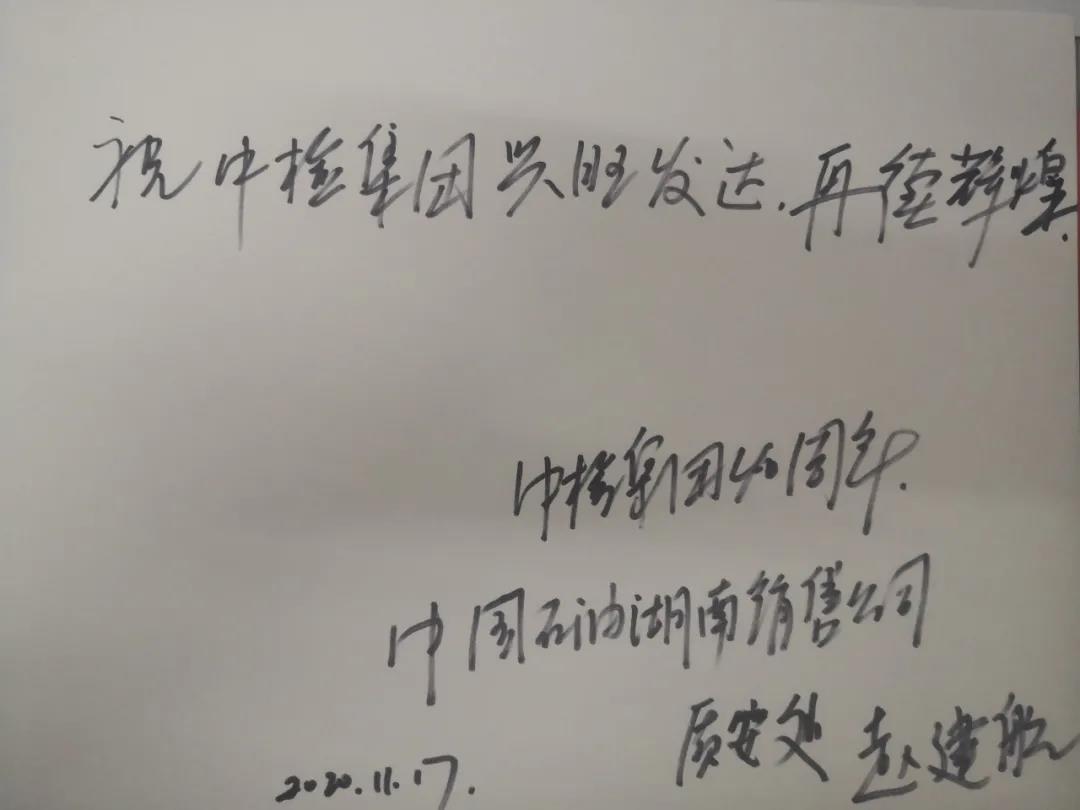 祝中检集团兴旺发达.再续辉煌.
中检集团40周年.
中国石油湖南销售公司
质安处 赵建航
2020.11.17.